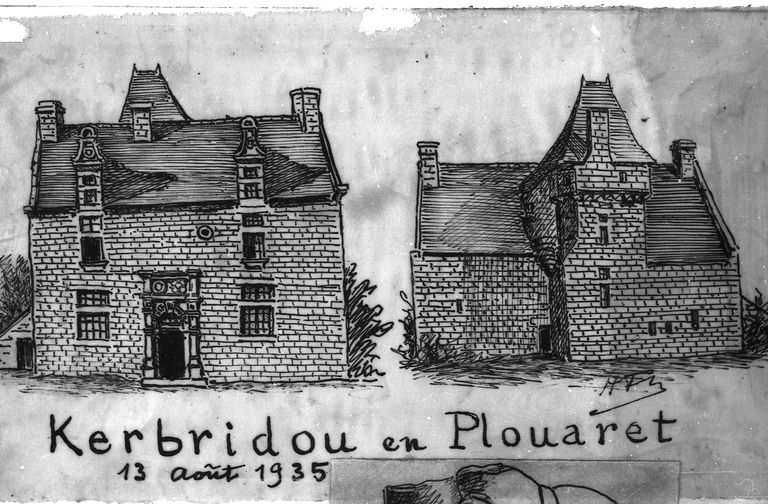 Kerbridou en Plouaret
13 août 1935